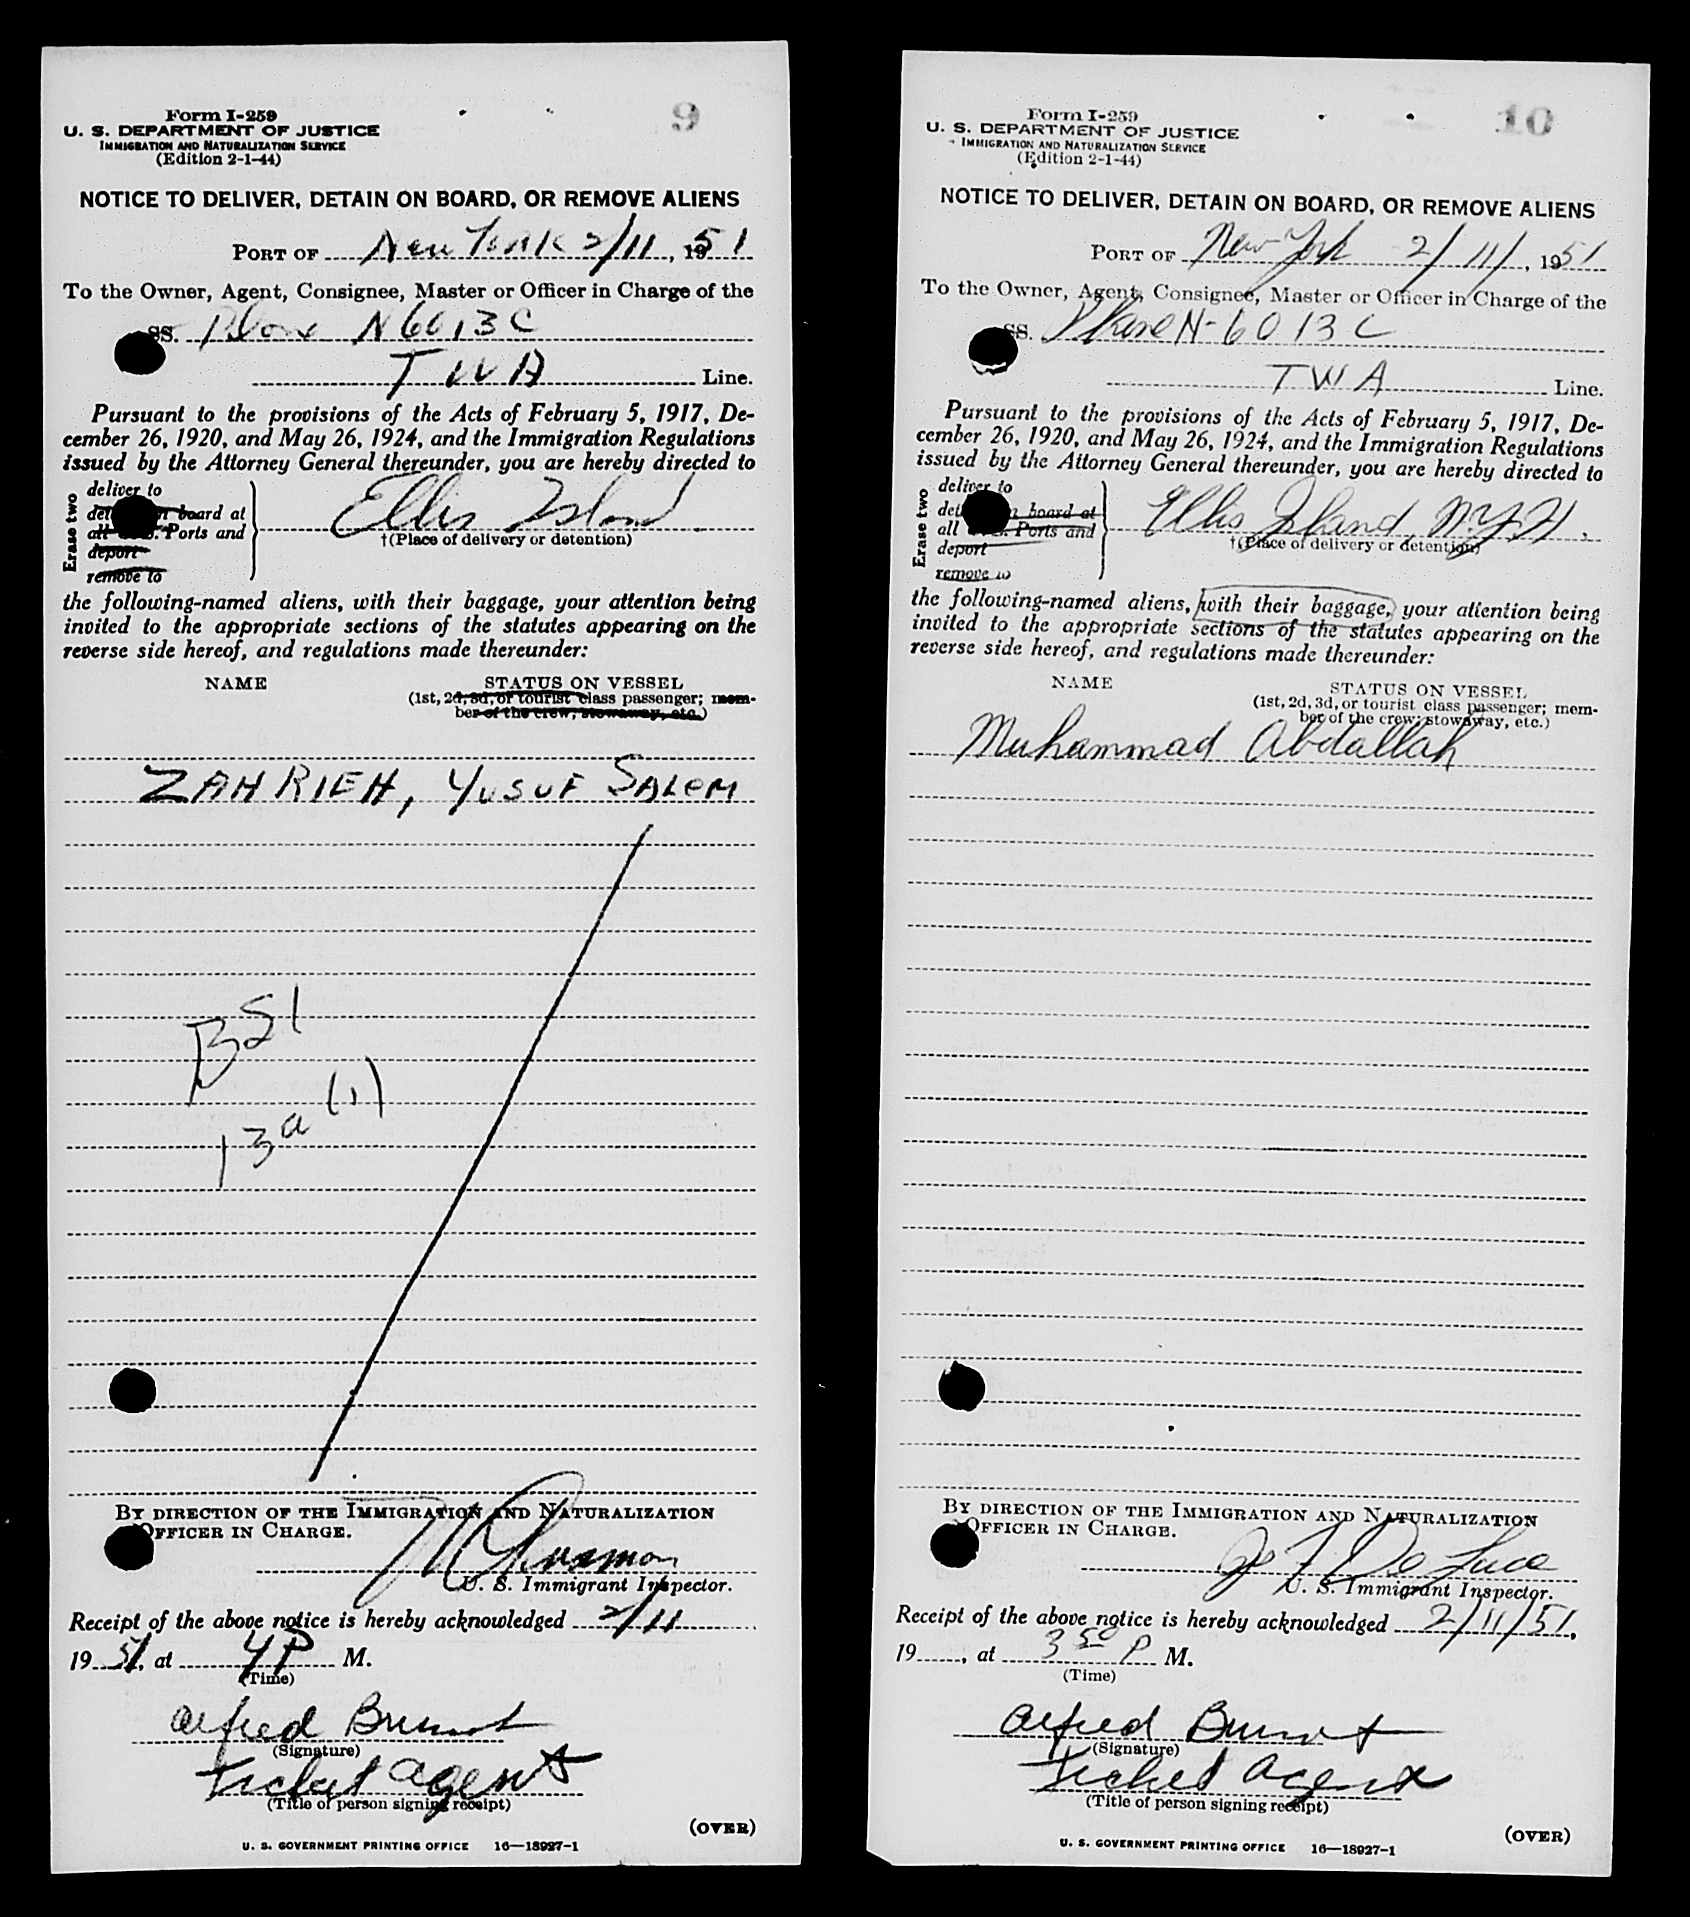 9
Form I-259
U. S. DEPARTMENT OF JUSTICE
IMMIGRATION AND NATURALIZATION SERVICE
(Edition 2-1-44)
NOTICE TO DELIVER, DETAIN ON BOARD, OR REMOVE ALIENS
PORT OF New York 2/11, 1951
To the Owner, Agent, Consignee, Master or Officer in Charge of the
SS. Plane N6013C
TWA Line.
Pursuant to the provisions of the Acts of February 5, 1917, De-
cember 26, 1920, and May 26, 1924, and the Immigration Regulations
issued by the Attorney General thereunder, you are hereby directed to
Erase two
deliver to
board at
all Ports and
deport
remove to
Ellis Island
†(Place of delivery or detention)
the following-named aliens, with their baggage, your attention being
invited to the appropriate sections of the statutes appearing on the
reverse side hereof, and regulations made thereunder:
NAME STATUS ON VESSEL
(1st, 2d, 3d, or tourist class passenger; mem-
ber of the crew, stowaway, etc.)
ZAHRIEH, YUSUF SALEM
B51
13a (1)
BY DIRECTION OF THE IMMIGRATION AND NATURALIZATION
OFFICER IN CHARGE.
U. S. Immigrant Inspector.
Receipt of the above notice is hereby acknowledged 2/11
1951, at 4 P M.
(Time)
Alfred
(Signature)
Ticket agent
(Title of person signing receipt)
(OVER)
U. S. GOVERNMENT PRINTING OFFICE 16—18927-1
10
Form I-259
U. S. DEPARTMENT OF JUSTICE
IMMIGRATION AND NATURALIZATION SERVICE
(Edition 2-1-44)
NOTICE TO DELIVER, DETAIN ON BOARD, OR REMOVE ALIENS
PORT OF New York 2/11/, 1951
To the Owner, Agent, Consignee, Master or Officer in Charge of the
SS. Plane N-6013C
TWA Line.
Pursuant to the provisions of the Acts of February 5, 1917, De-
cember 26, 1920, and May 26, 1924, and the Immigration Regulations
issued by the Attorney General thereunder, you are hereby directed to
Erase two
deliver to
board at
all Ports and
deport
remove to
Ellis Island, N.Y.H.
†(Place of delivery or detention)
the following-named aliens, with their baggage, your attention being
invited to the appropriate sections of the statutes appearing on the
reverse side hereof, and regulations made thereunder:
NAME STATUS ON VESSEL
(1st, 2d, 3d, or tourist class passenger; mem-
ber of the crew, stowaway, etc.)
Muhammad Abdallah
BY DIRECTION OF THE IMMIGRATION AND NATURALIZATION
OFFICER IN CHARGE.
De Luca
U. S. Immigrant Inspector.
Receipt of the above notice is hereby acknowledged 2/11/51,
19......, at 3 50 P M.
(Time)
Alfred
(Signature)
Ticket Agent
(Title of person signing receipt)
(OVER)
U. S. GOVERNMENT PRINTING OFFICE 16—18927-1